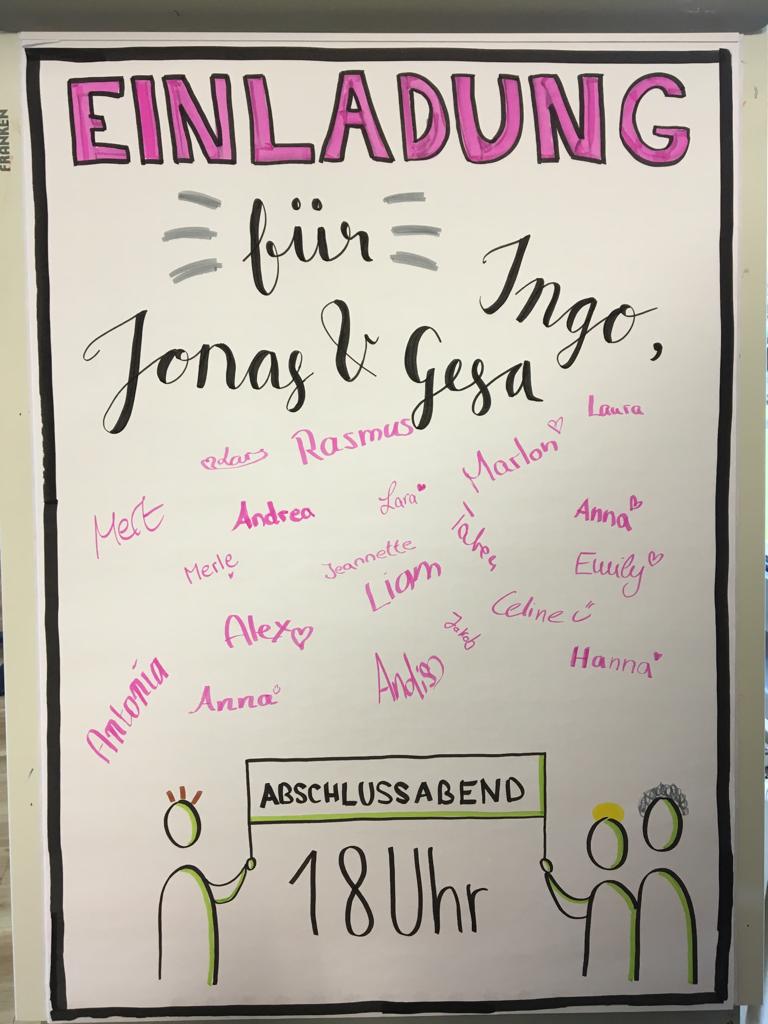 FRANKEN
EINLADUNG
für
Ingo,
Jonas & Gesa
Laura
Lars Rasmus Marlon
Mert Andrea Lara Anna
Merle Jeannette Emily
Liam
Alex Jakob Celine
Hanna
Antonia Anna
ABSCHLUSSABEND
18 Uhr